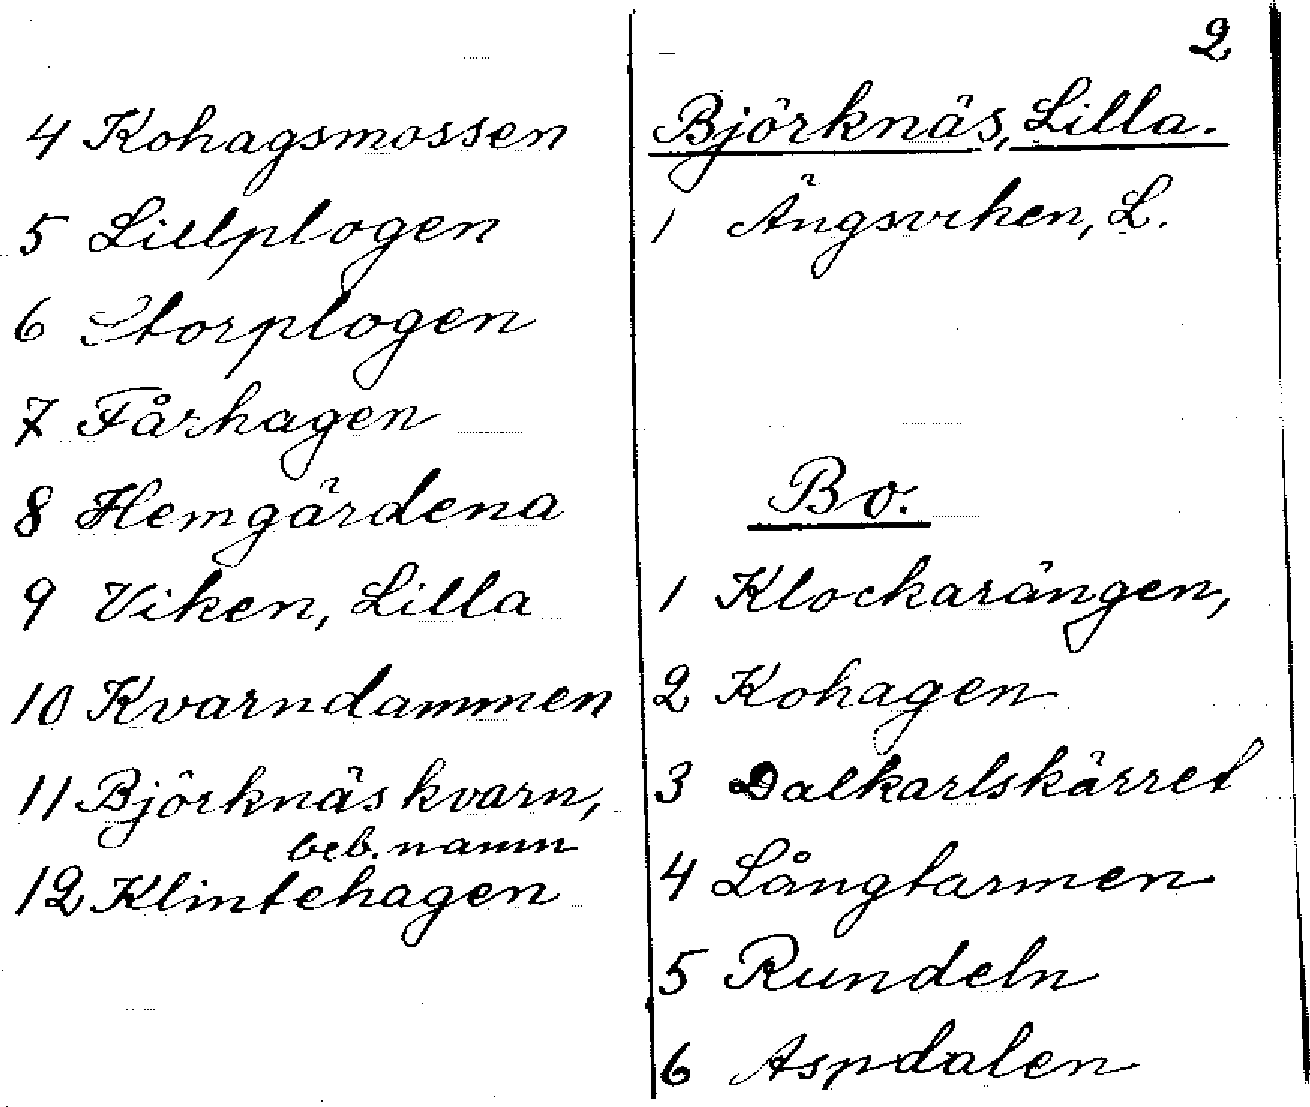 4 Kohagsmossen
5 Lillplogen
6 Storplogen
7 Fårhagen
8 Hemgärdena
9 Viken, Lilla
10 Kvarndammen
11 Björknäs kvarn,
beb. namn
12 Klintehagen
2
Björknäs, Lilla.
1 Ängsviken, L.
Bo.
1 Klockarängen,
2 Kohagen
3 Dalkarlskärret
4 Långtarmen
5 Rundeln
6 Aspdalen